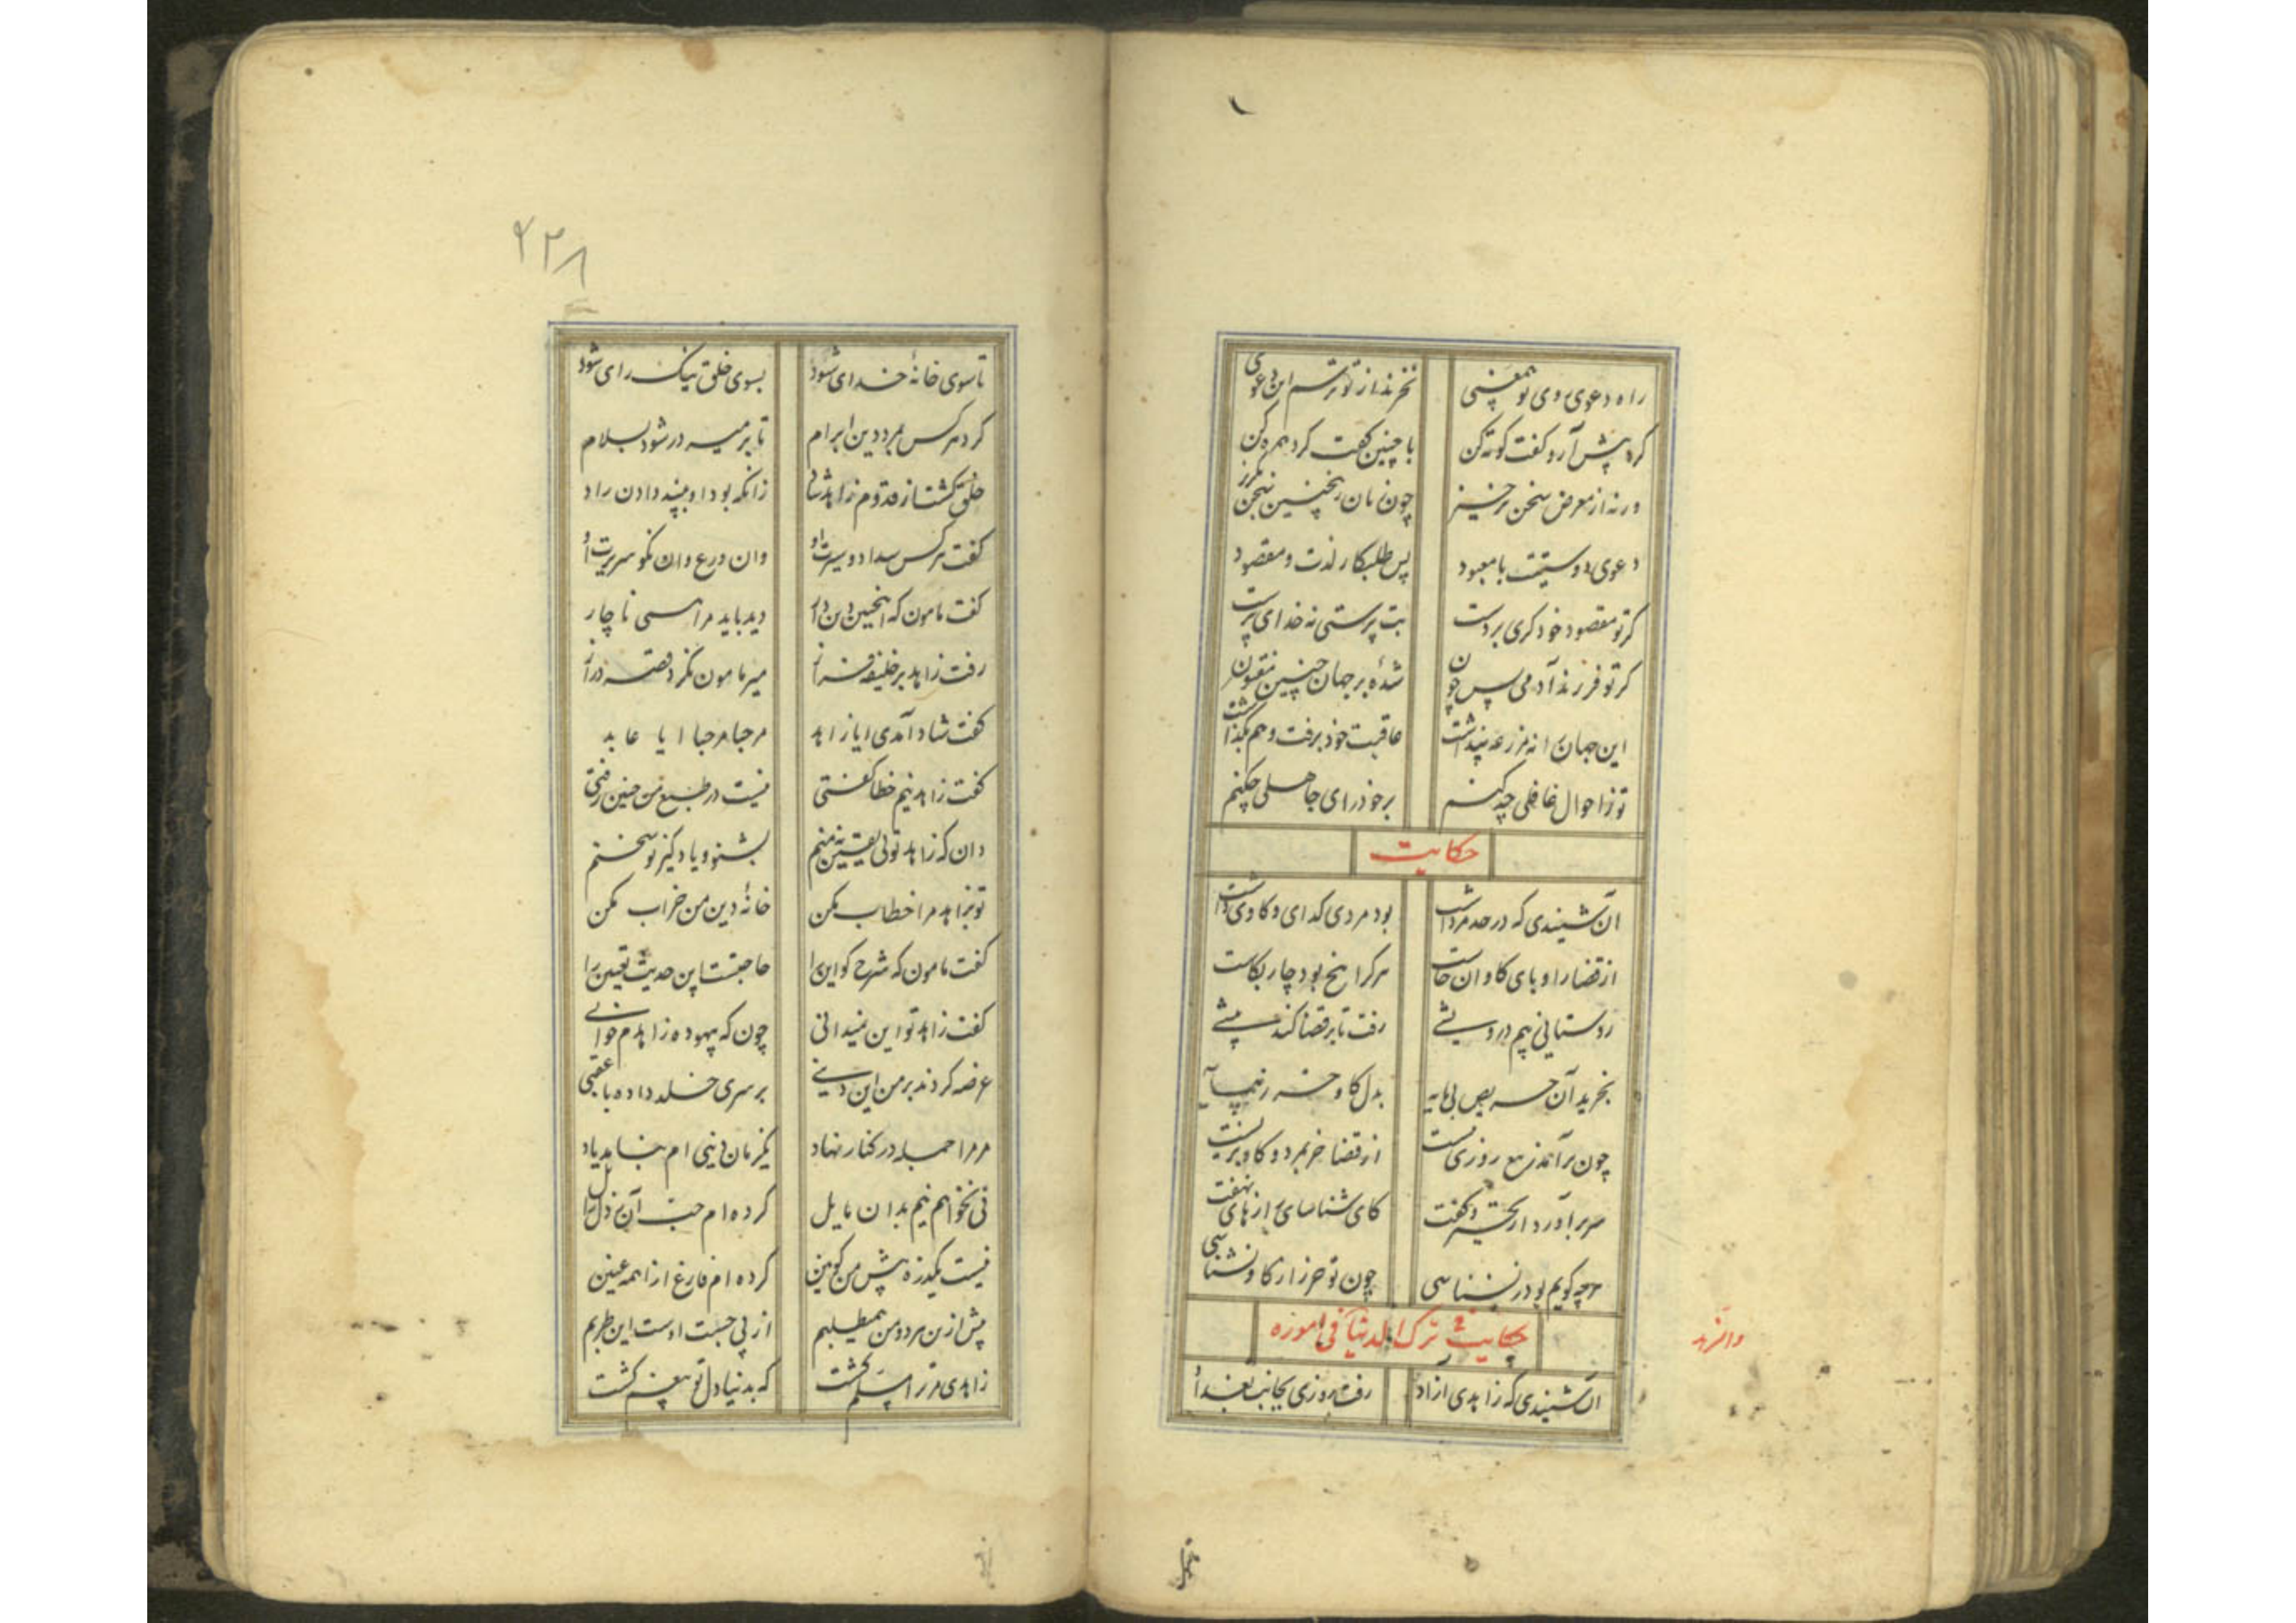 راه دعوی روی تو بی‌معنی نخرند از تو ترسم این دعوی
کرد پیش آر و گفت کوته کن با چنین گفت کرد همره کن
ورنه از معرض سخن برخیز چون زنان زینچنین سخن مگریز
دعوی دوستیت با معبود پس طلبکار لذت و مقصود
گر تو مقصود خود گری بردست بت پرستی نه خدای پرست
گر تو فرزند آدمی پس چون شدهٔ بر جهان چنین مفتون
این جهان را نه مزرعه پنداشت عاقبت خود برفت و هم بگذاشت
تو ز احوال غافلی چه کنم بر خود رای جاهلی چکنم
حکایت
آن شنیدی که در حد مرداشت بود مردی گدای و گاوی داشت
از قضا را وبای گاوان خاست هر کرا پنج بود چار بکاست
روستایی بیم درویشی رفت تا بر قضا کند پیشی
بخرید آن حریص بی مایه بدل گاو خر ز همسایه
چون برآمد ز بیع روزی بیست از قضا خر بمرد و گاو بزیست
سر برآورد از تحیر و گفت کای شناسای رازهای نهفت
هرچه گویم بود ز نسناسی چون تو خر را ز گاو نشناسی
حکایت فی ترک الدنیا فی اموره
آن شنیدی که زاهدی آزاد رفت روزی بجانب بغداد
۲۳۸
تا سوی خانهٔ خدای شود بسوی خلق نیک رای شود
کرد هر کس بمرد دین ابرام تا بر میر در شود بسلام
خلق گشت از قدوم زاهد شاد زانکه بود او بپند دادن راد
گفت هر کس سداد و سیرت او وان ورع وان نکو سریرت او
گفت مامون که اینچنین دین دار دید باید مرا همی ناچار
رفت زاهد بر خلیفه فراز میر مامون نکرد قصه دراز
گفت شاد آمدی ایا زاهد مرحبا مرحبا ایا عابد
گفت زاهد نیم خطا گفتی نیست در طبع من چنین زفتی
دان که زاهد توئی یقین نه منم بشنو و یاد گیر تو سخنم
تو بزاهد مرا خطاب مکن خانهٔ دین من خراب مکن
گفت مامون که شرح گو این را حاجتست این حدیث تعیین را
گفت زاهد تو این نمیدانی چون که بیهوده زاهدم خوانی
عرضه کردند بر من این دنیی بر سری خلد داده با عقبی
مر مرا جمله در کنار نهاد یکزمان زینی ام نیاید یاد
نی نخواهم نیم بدان مایل کرده‌ام حب آن ز دل زایل
نیست یکذره پیش من کونین کرده‌ام فارغ از همه عینین
بیش ازین مر دو من همی‌طلبم از پی جست اوست این طربم
زاهدی مر ترا مسلم گشت که بدنیا دل تو بی‌غم گشت